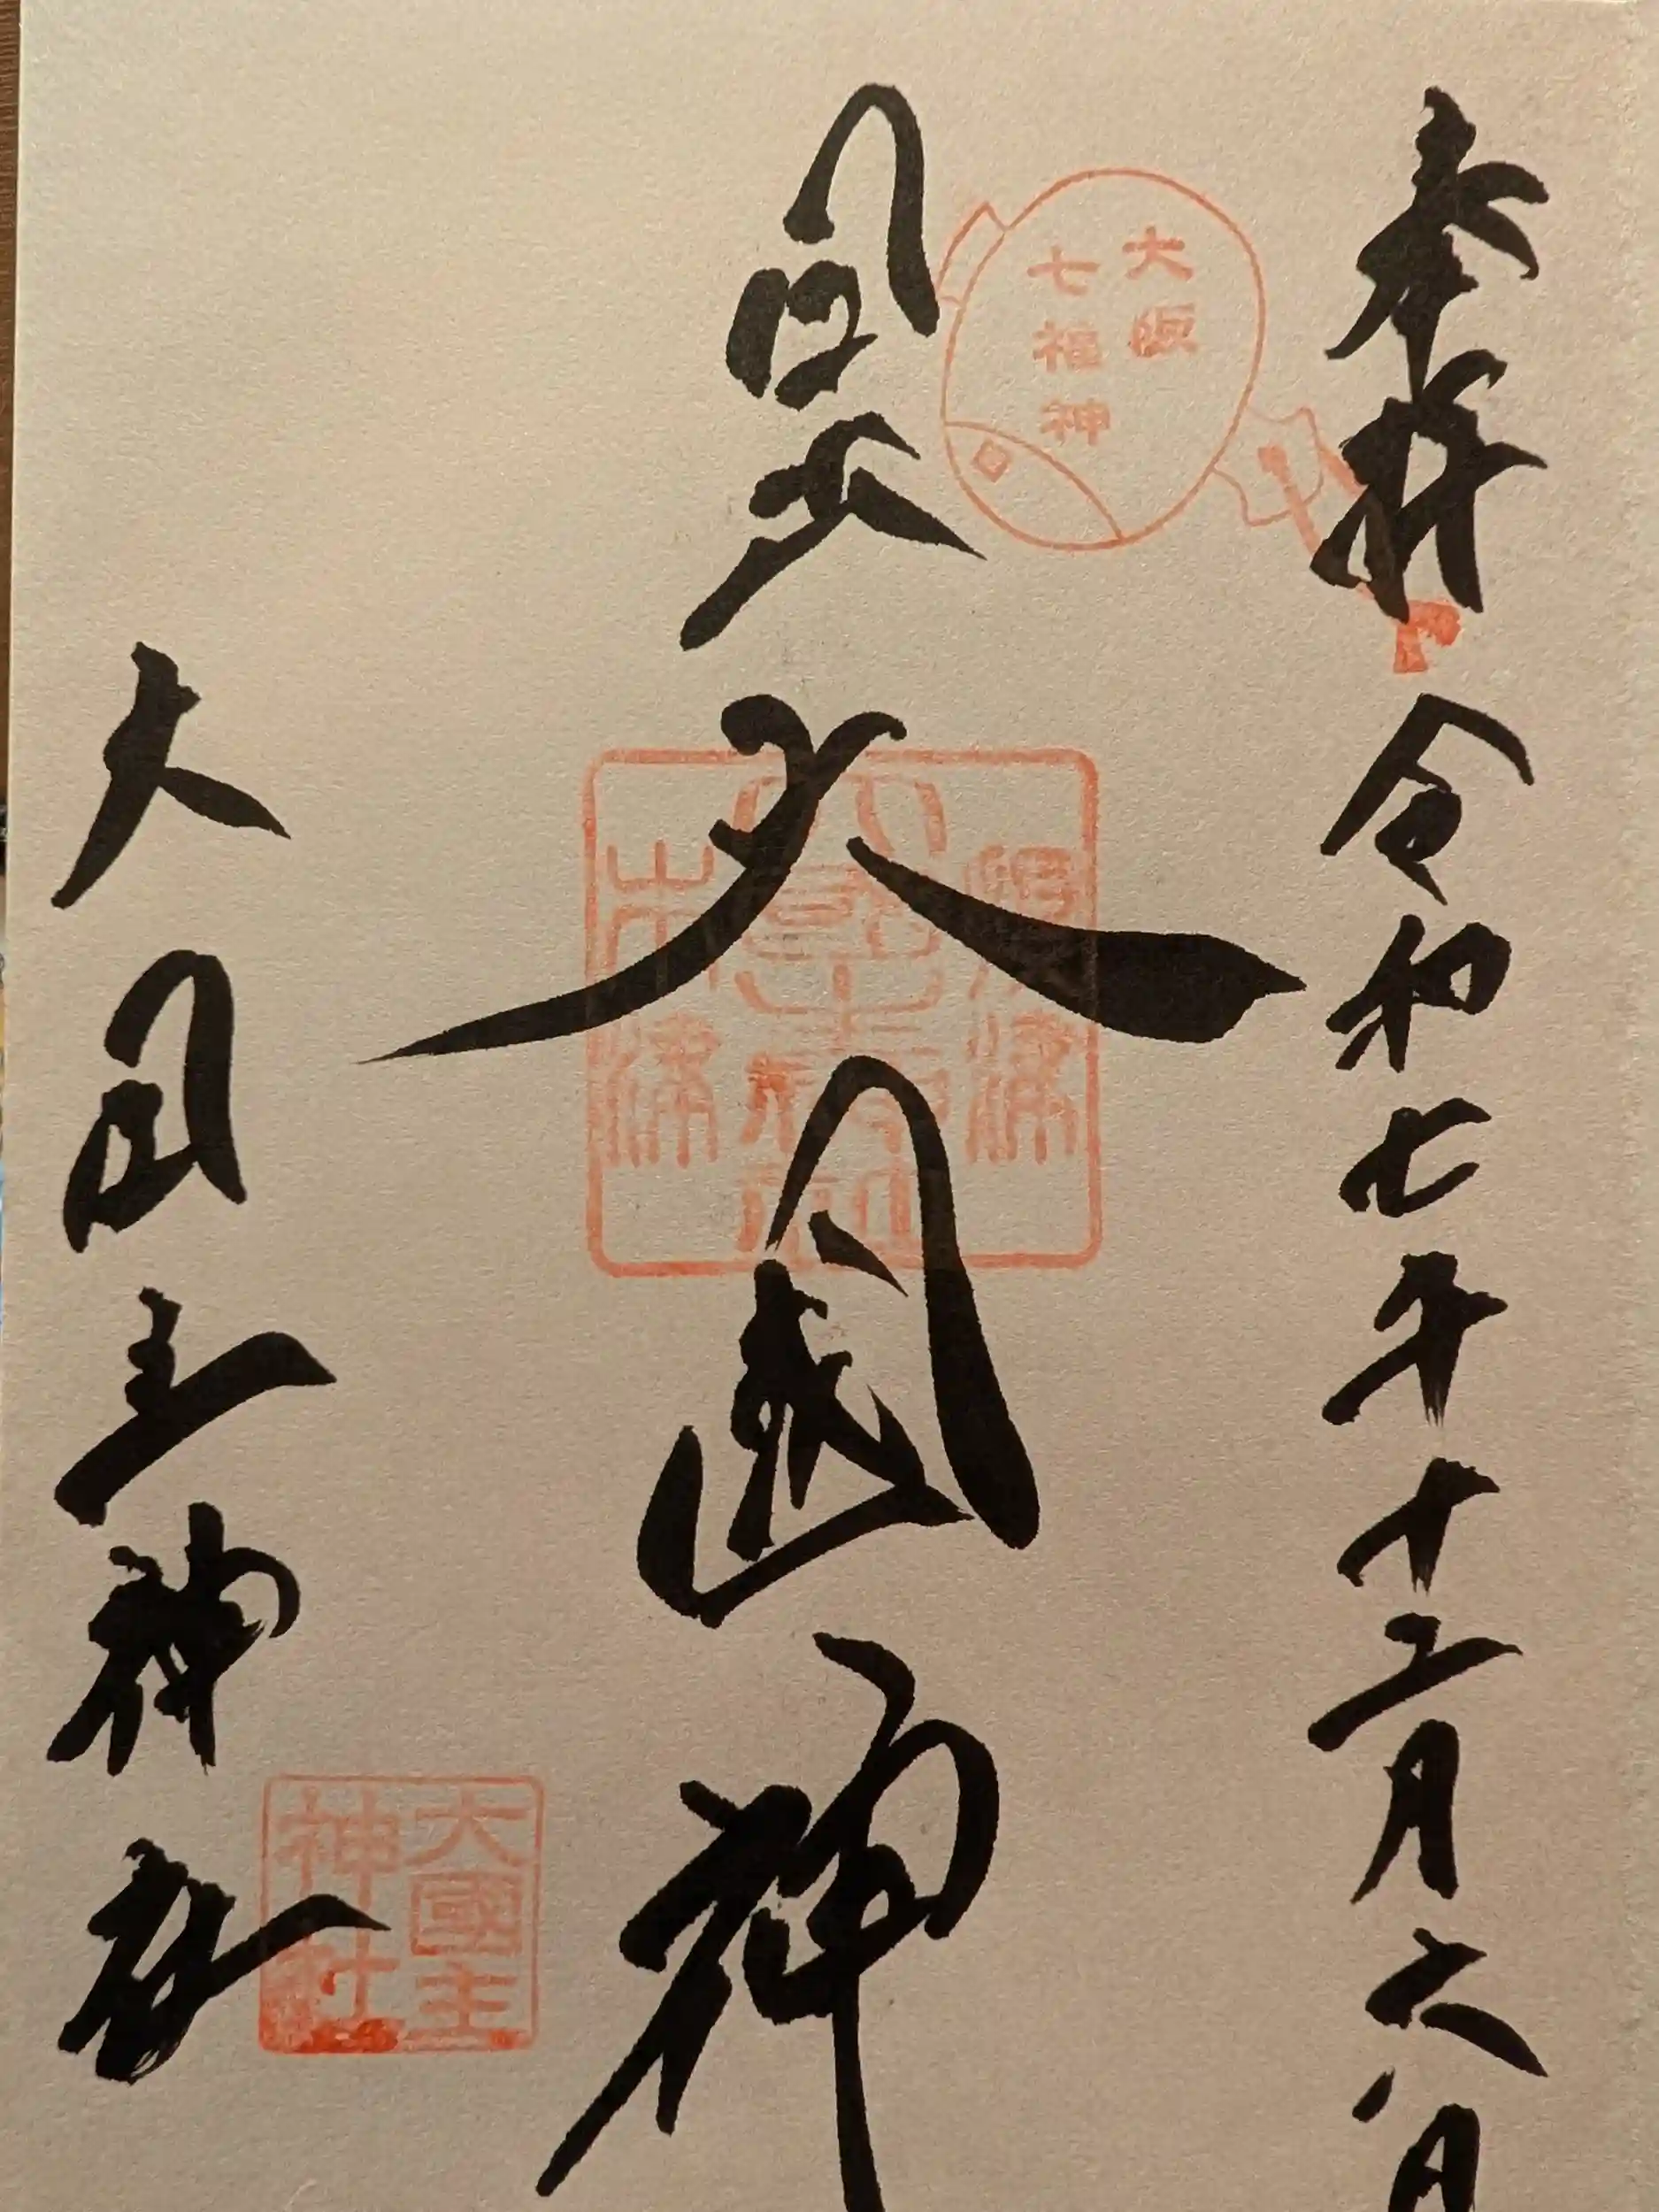 奉拝
令和七年十二月六日
大阪
七福神
日出大國神
大国主神社
大國主
神社